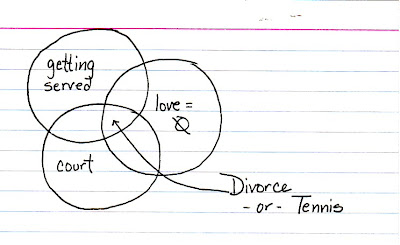 getting
served
love =
Ø
court
Divorce
- or - Tennis